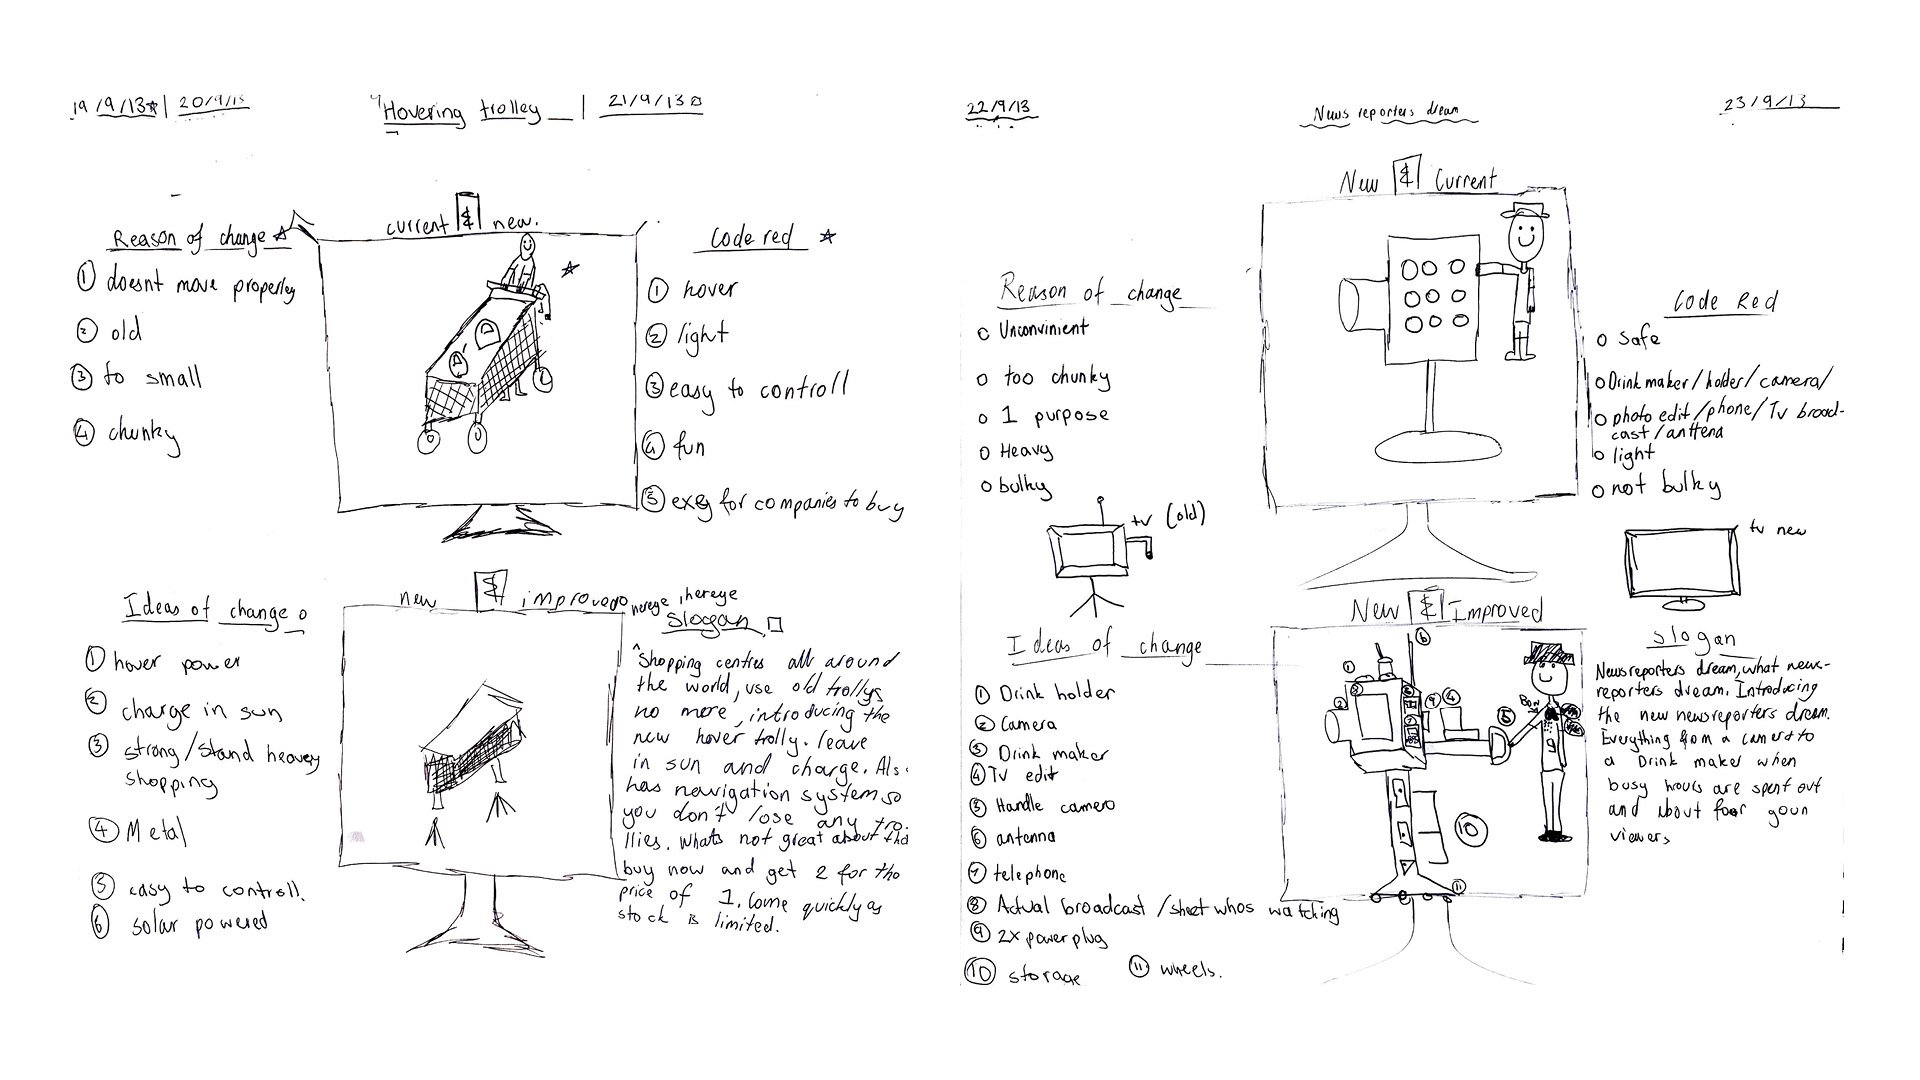 19/9/13 | 20/9/13
Hovering trolley | 21/9/13
Reason of change
① doesnt move properley
② old
③ to small
④ chunky
current & new.
Code red
① hover
② light
③ easy to controll
④ fun
⑤ for companies to buy
Ideas of change
① hover power
② charge in sun
③ strong/stand heavey
shopping
④ Metal
⑤ easy to controll.
⑥ solar powered
new & improved
hereye, hereye
slogan
"Shopping centres all around
the world, use old trollys
no more, introducing the
new hover trolly. leave
in sun and charge. Als
has navigation system so
you don't lose any tro.
llies. Whats not great about tha
buy now and get 2 for the
price of 1. Come quickly as
stock is limited.
22/9/13
News reporters dream
23/9/13
New & Current
Reason of change
o Unconvinient
o too chunky
o 1 purpose
o Heavy
o bulky
tv (old)
Code Red
o Safe
o Drink maker/holder/camera/
o photo edit/phone/Tv broad-
cast/anttena
o light
o not bulky
tv new
New & Improved
Ideas of change
① Drink holder
② Camera
③ Drink maker
④ Tv edit
⑤ Handle camera
⑥ antenna
⑦ telephone
⑧ Actual broadcast /sheet whos watching
⑨ 2x power plug
⑩ storage
⑪ wheels.
① ② ③ ④ ⑤ ⑥ ⑦ ⑧ ⑨ ⑩ ⑪
slogan
Newsreporters dream, what news-
reporters dream. Introducing
the new newsreporters dream.
Everything from a camera to
a Drink maker when
busy hours are spent out
and about for youn
viewers